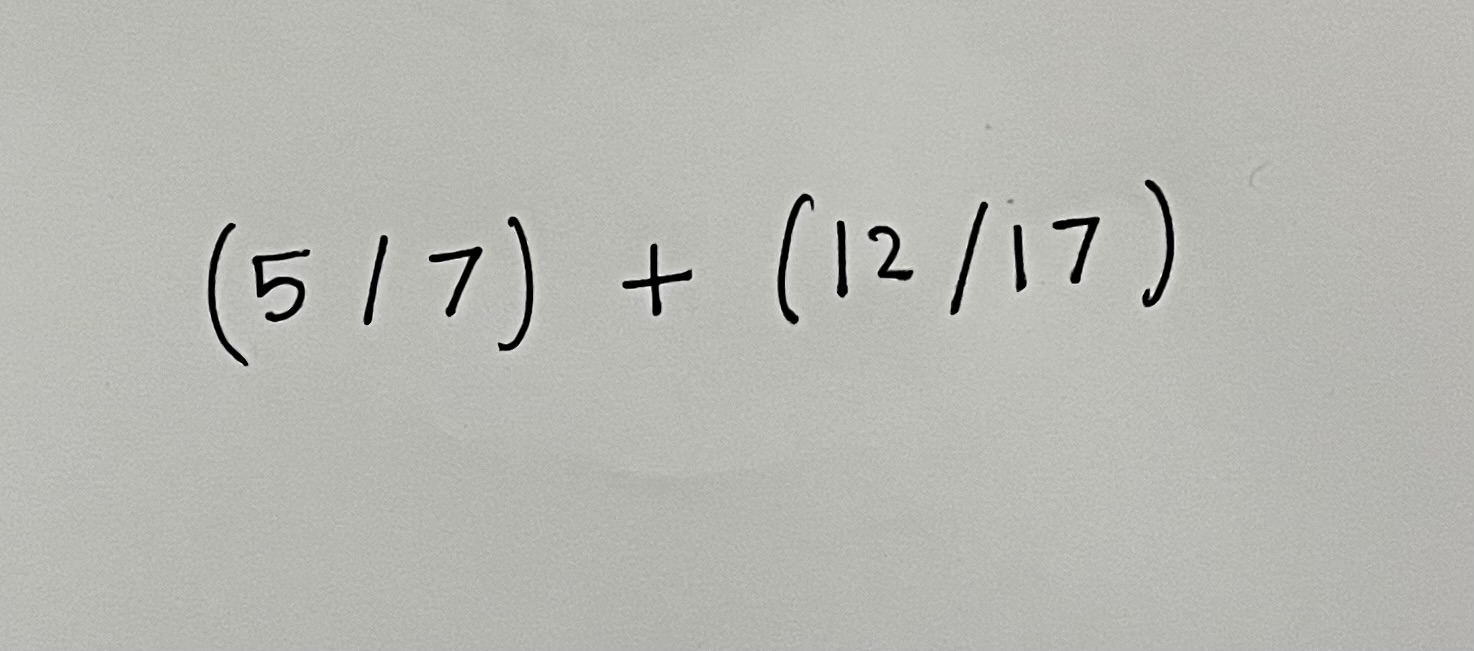 (5/7) + (12/17)